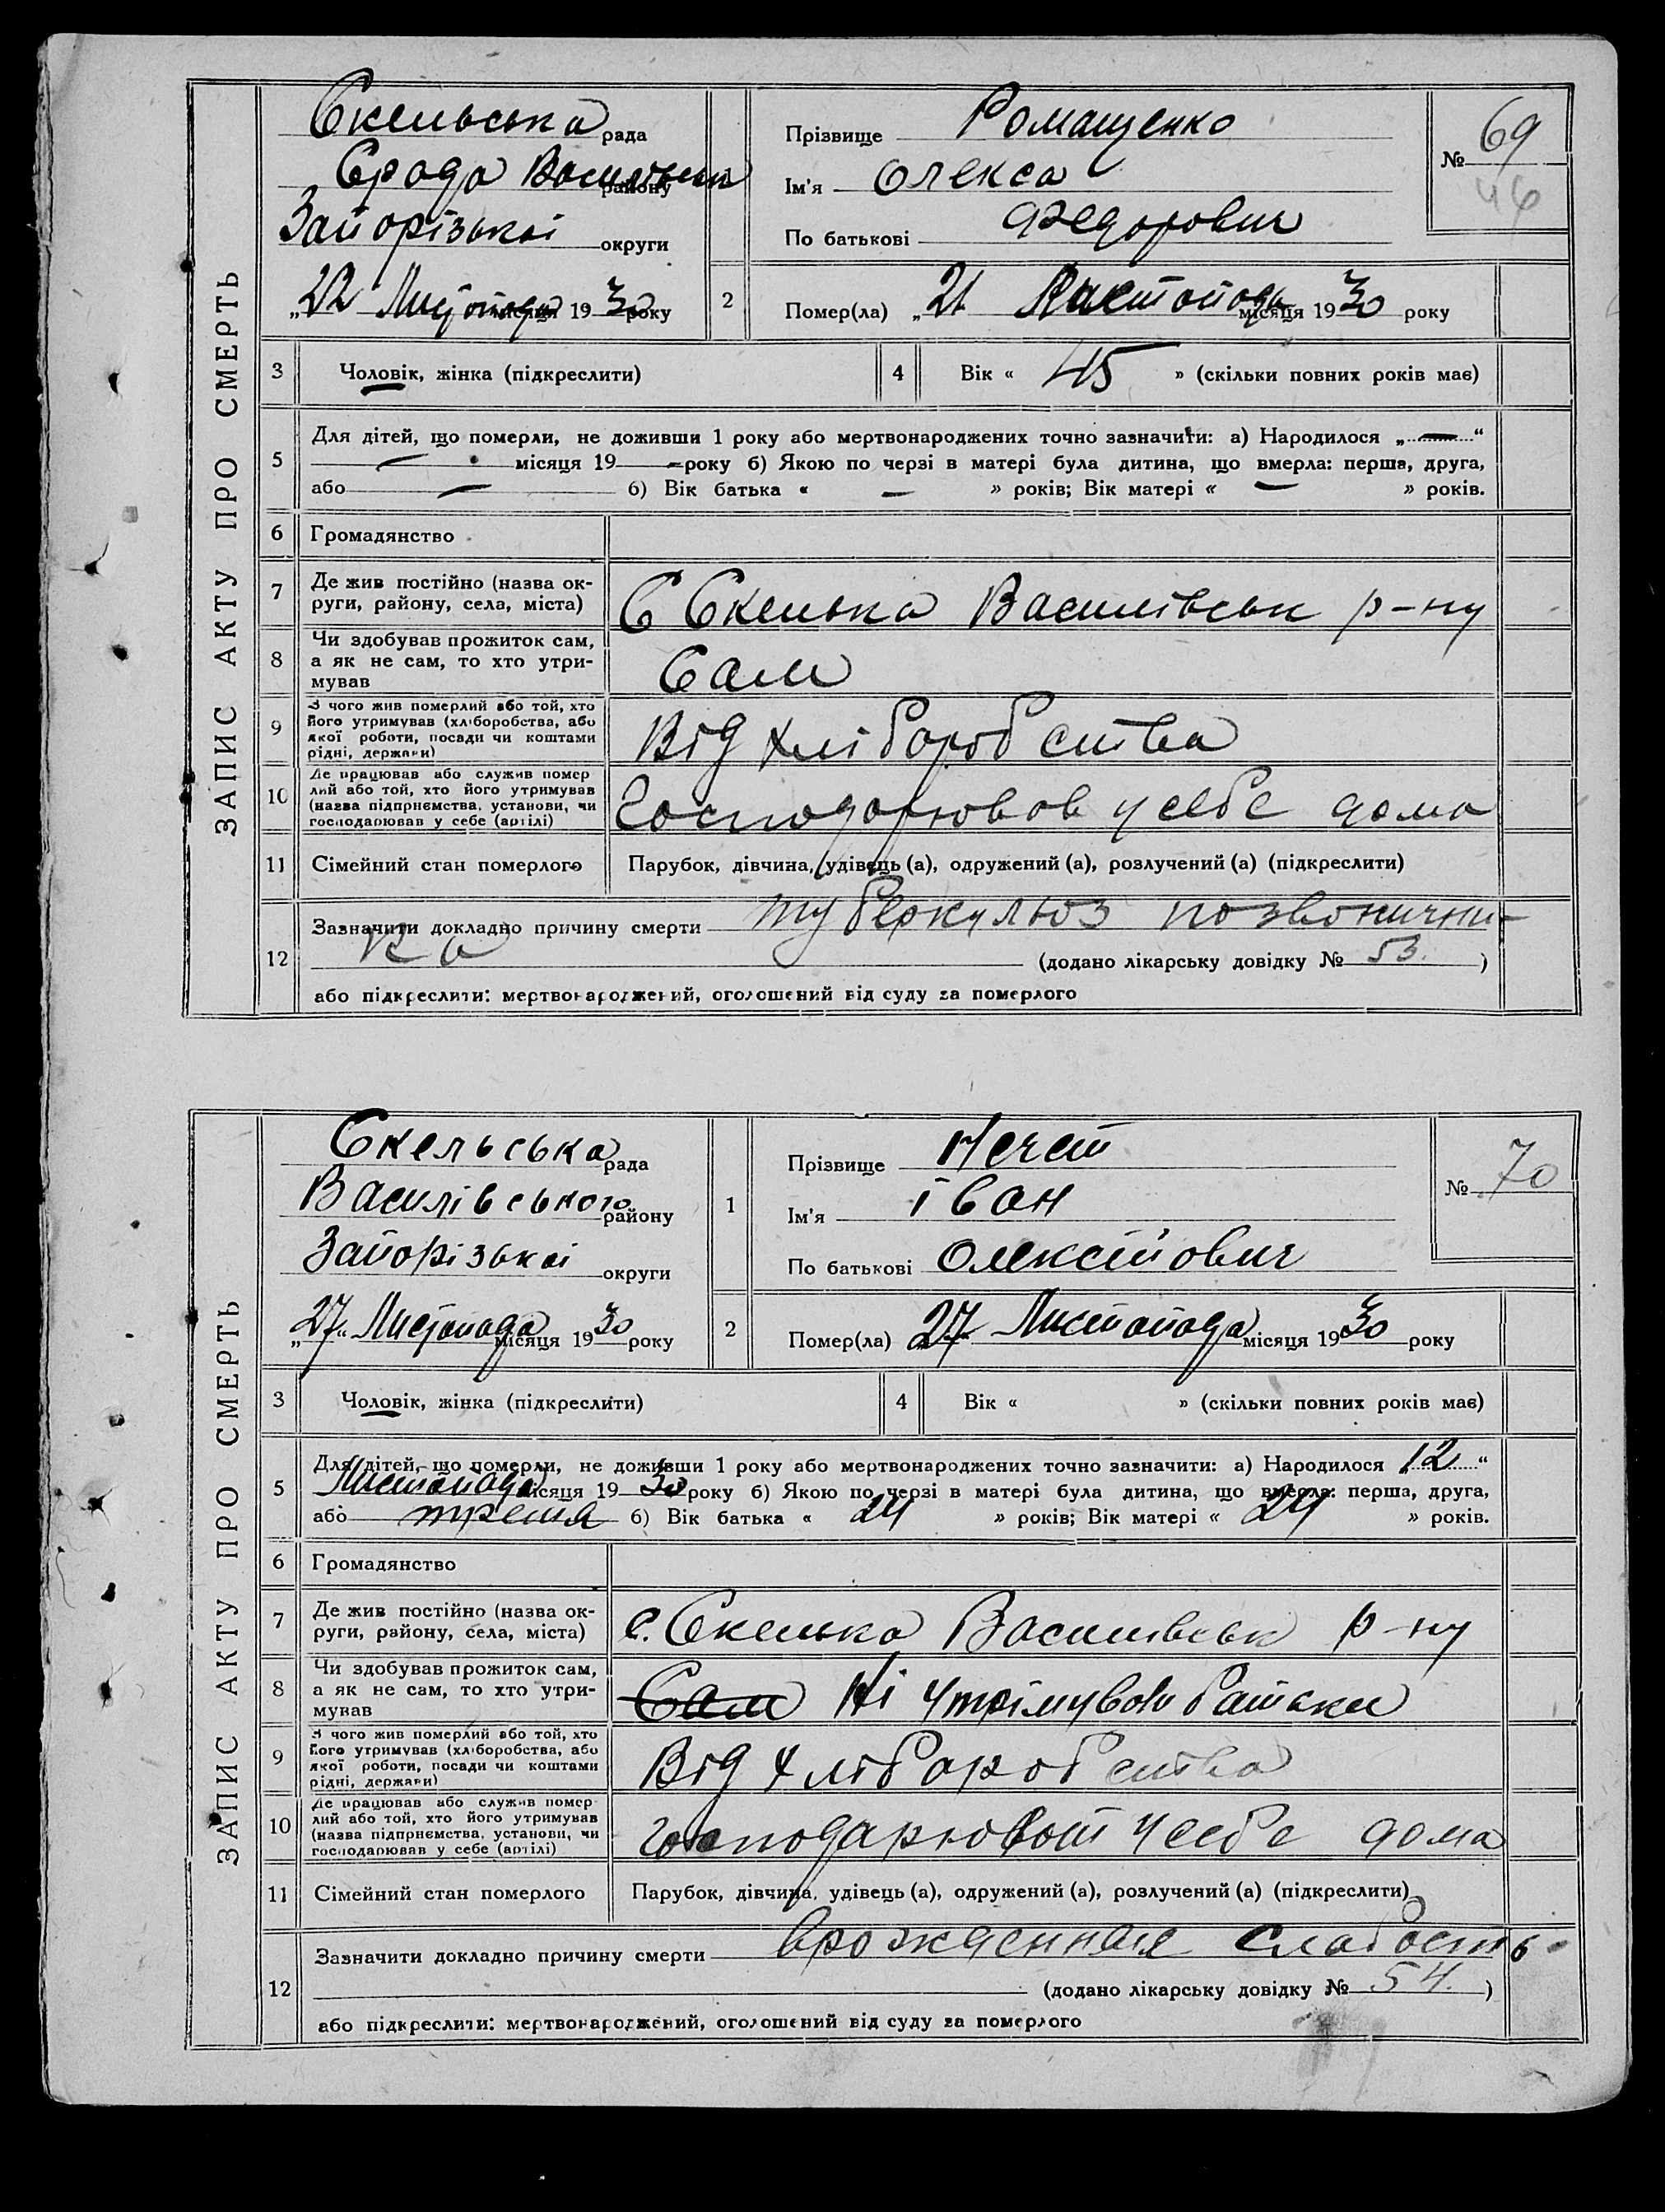 ЗАПИС АКТУ ПРО СМЕРТЬ
Скельська рада
района
Запорізької округи
„22 Листопада місяця 1930 року
Прізвище Ромащенко
Ім'я Олекса
По батькові Федорович
№ 69
46
2 Помер(ла) „21 Листопада місяця 1930 року
3 Чоловік, жінка (підкреслити)
4 Вік « 45 » (скільки повних років має)
5 Для дітей, що померли, не доживши 1 року або мертвонароджених точно зазначити: а) Народилося „ — “
— місяця 19 — року б) Якою по черзі в матері була дитина, що вмерла: перша, друга,
або — б) Вік батька « — » років; Вік матері « — » років.
6 Громадянство
7 Де жив постійно (назва ок-
руги, району, села, міста) С Скелька Василівськ р-ну
8 Чи здобував прожиток сам,
а як не сам, то хто утри-
мував Сам
9 З чого жив померлий або той, хто
його утримував (хліборобства, або
якої роботи, посади чи коштами
рідні, держави) Від хліборобства
10 Де працював або служив помер
лий або той, хто його утримував
(назва підприємства, установи, чи
господарював у себе (артілі) Господорював у себе дома
11 Сімейний стан померлого Парубок, дівчина, удівець (а), одружений (а), розлучений (а) (підкреслити)
12 Зазначити докладно причину смерти туберкульоз позвонични-
ка (додано лікарську довідку № 53. )
або підкреслити: мертвонароджений, оголошений від суду за померлого
ЗАПИС АКТУ ПРО СМЕРТЬ
Скельська рада
Василівського району
Запорізької округи
„27“ Листопада місяця 1930 року
1 Прізвище Нечет
Ім'я Іван
По батькові Олексійович
№ 70
2 Помер(ла) „27“ Листопада місяця 1930 року
3 Чоловік, жінка (підкреслити)
4 Вік « » (скільки повних років має)
5 Для дітей, що померли, не доживши 1 року або мертвонароджених точно зазначити: а) Народилося „12“
Листопада місяця 1930 року б) Якою по черзі в матері була дитина, що вмерла: перша, друга,
або третя б) Вік батька « 24 » років; Вік матері « 24 » років.
6 Громадянство
7 Де жив постійно (назва ок-
руги, району, села, міста) с. Скелька Василівськ р-ну
8 Чи здобував прожиток сам,
а як не сам, то хто утри-
мував Сам Ні утрімували батьки
9 З чого жив померлий або той, хто
його утримував (хліборобства, або
якої роботи, посади чи коштами
рідні, держави) Від хліборобства
10 Де працював або служив помер
лий або той, хто його утримував
(назва підприємства, установи, чи
господарював у себе (артілі) у себе дома
11 Сімейний стан померлого Парубок, дівчина, удівець (а), одружений (а), розлучений (а) (підкреслити)
12 Зазначити докладно причину смерти врожденная слабость
(додано лікарську довідку № 54. )
або підкреслити: мертвонароджений, оголошений від суду за померлого